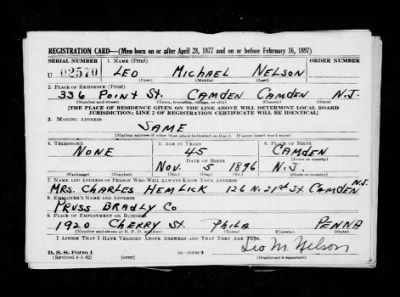 REGISTRATION CARD—(Men born on or after April 28, 1877 and on or before February 16, 1897)
SERIAL NUMBER 1. NAME (Print) ORDER NUMBER
U 02570 LEO MICHAEL NELSON
(First) (Middle) (Last)
2. PLACE OF RESIDENCE (Print)
336 POINT St. CAMDEN CAMDEN N.J.
(Number and street) (Town, township, village, or city) (County) (State)
[THE PLACE OF RESIDENCE GIVEN ON THE LINE ABOVE WILL DETERMINE LOCAL BOARD
JURISDICTION; LINE 2 OF REGISTRATION CERTIFICATE WILL BE IDENTICAL]
3. MAILING ADDRESS
SAME
(Mailing address if other than place indicated on line 2. If same insert word same)
4. TELEPHONE 5. AGE IN YEARS 6. PLACE OF BIRTH
NONE 45 CAMDEN
DATE OF BIRTH (Town or county)
NOV. 5 1896 N.J.
(Exchange) (Number) (Mo.) (Day) (Yr.) (State or country)
7. NAME AND ADDRESS OF PERSON WHO WILL ALWAYS KNOW YOUR ADDRESS
MRS. CHARLES HEMLICK 126 N. 21st St CAMDEN N.J.
8. EMPLOYER'S NAME AND ADDRESS
TRUSS BRADLY CO
9. PLACE OF EMPLOYMENT OR BUSINESS
1920 CHERRY St PHILA PENNA
(Number and street or R. F. D. number) (Town) (County) (State)
I AFFIRM THAT I HAVE VERIFIED ABOVE ANSWERS AND THAT THEY ARE TRUE.
D. S. S. Form 1 Leo M. Nelson
(Revised 4-1-42) (Registrant's signature)